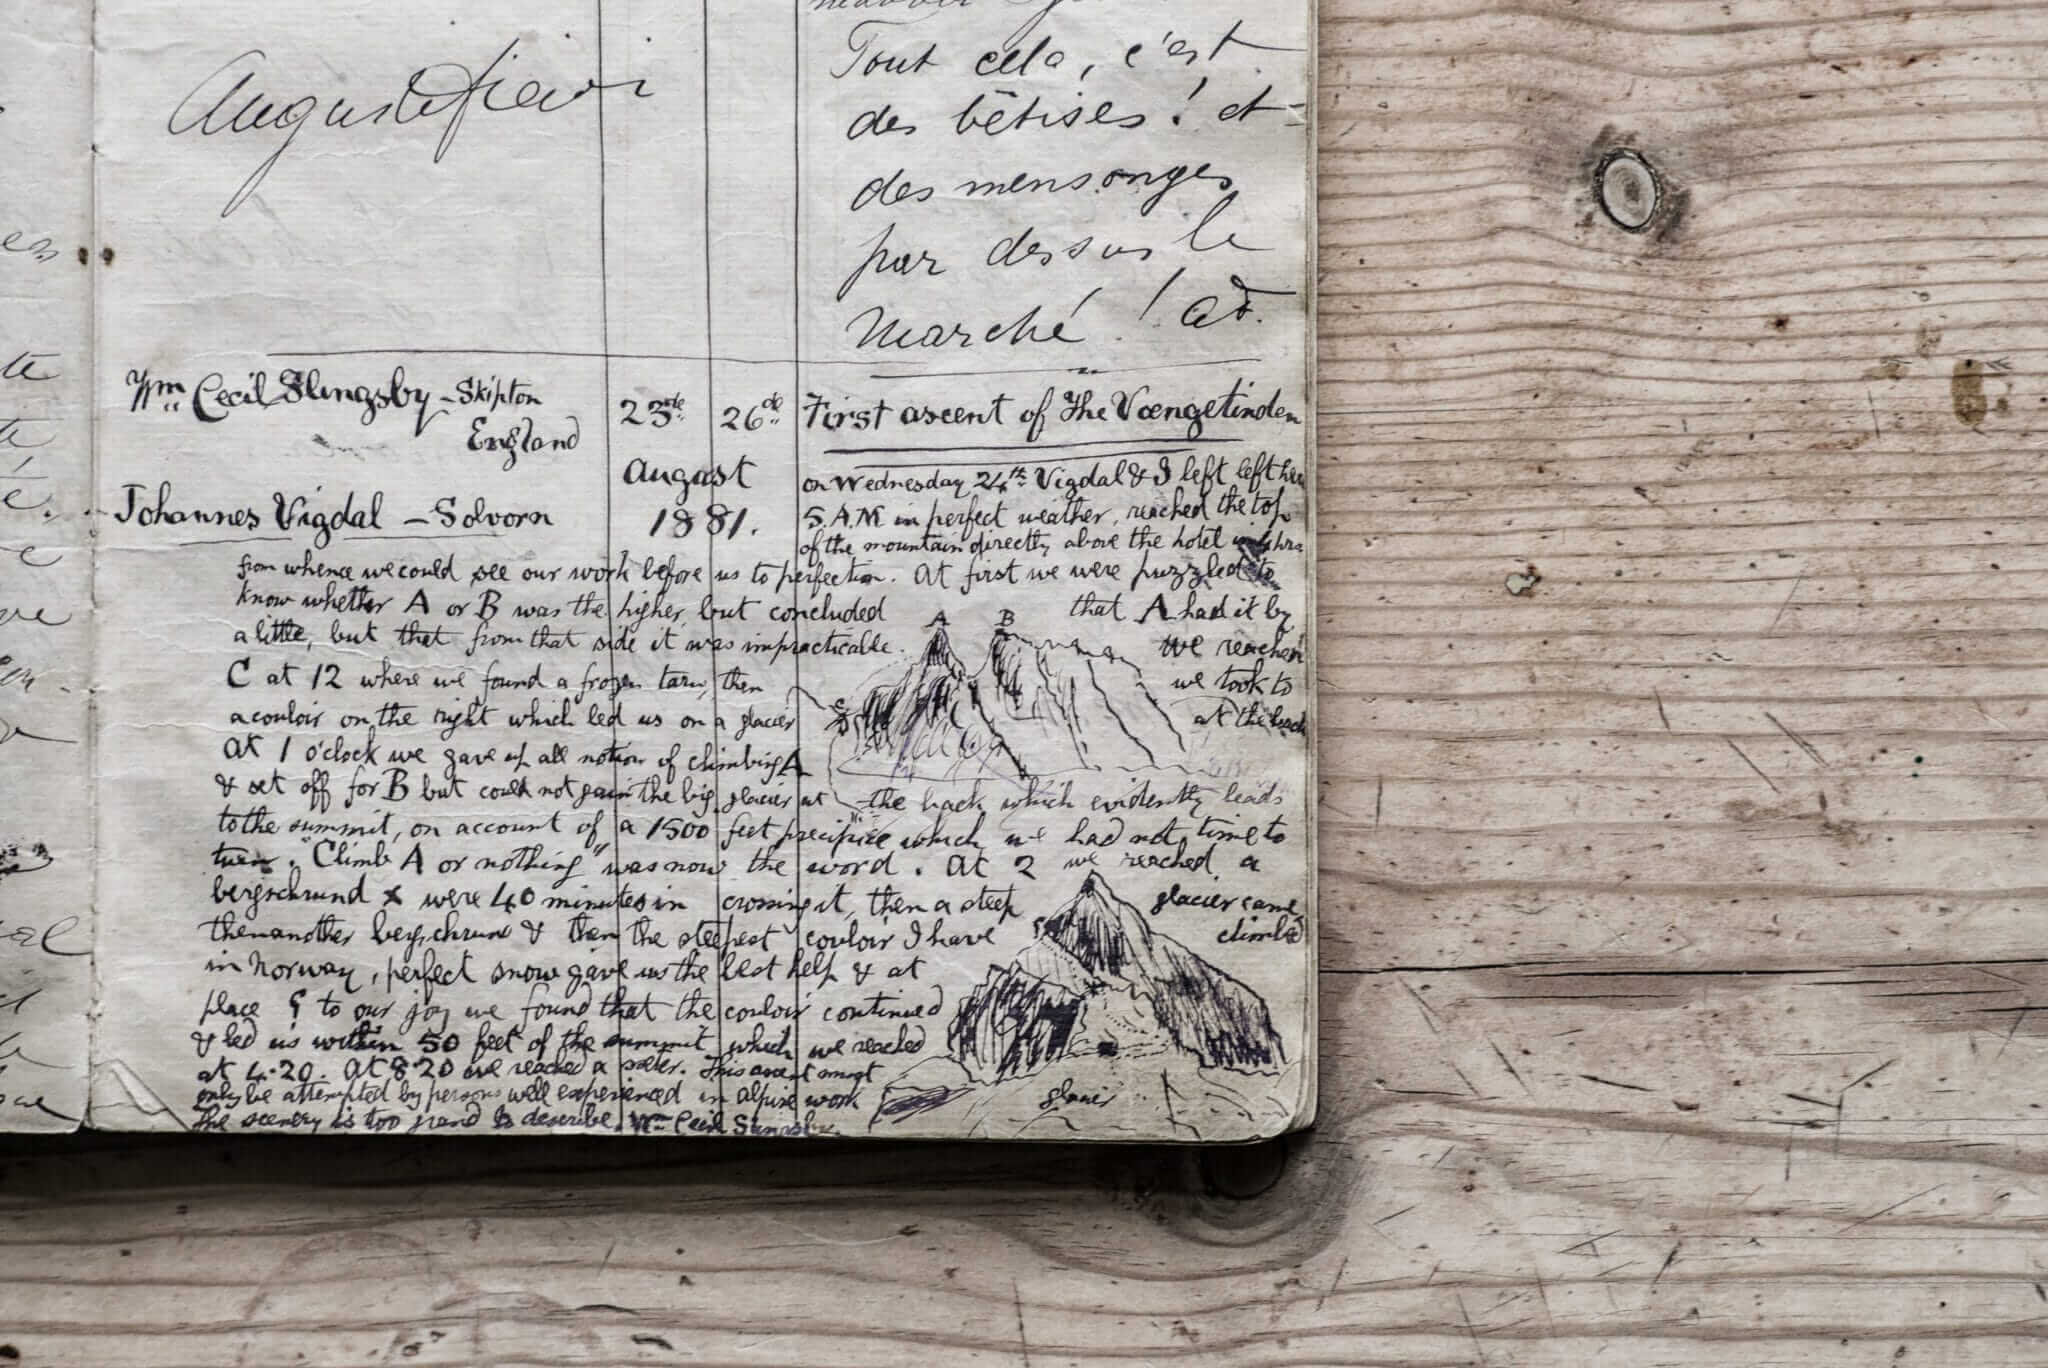 Tout cela, c'est
des bêtises! et
des mensonges
par dessus le
Marché! Ad.
Wm Cecil Slingsby – Skipton
England
23rd 26th
August
1881.
Johannes Vigdal – Solvorn
First ascent of The Vængetinden
on Wednesday 24th Vigdal & I left left here
5.A.M in perfect weather, reached the top
of the mountain directly above the hotel in hrs
from whence we could see our work before us to perfection. At first we were puzzled to
know whether A or B was the higher, but concluded that A had it by
a little, but that from that side it was impracticable. We reached
A B
C at 12 where we found a frozen tarn, then we took to
a couloir on the right which led us on a glacier at the back
C
At 1 o'clock we gave up all notion of climbing A
& set off for B but could not gain the big glacier at the back which evidently leads
to the summit, on account of a 1500 feet precipice which we had not time to
turn. "Climb A or nothing" was now the word. At 2 we reached a
bergschrund x were 40 minutes in crossing it, then a steep glacier came,
then another bergschrund & then the steepest couloir I have climbed
in Norway, perfect snow gave us the best help & at
place to our joy we found that the couloir continued
& led us within 50 feet of the summit which we reached
at 4.20. At 8.20 we reached a sæter. This ascent must
only be attempted by persons well experienced in alpine work
The scenery is too grand to describe. Wm Cecil Slingsby.
glacier